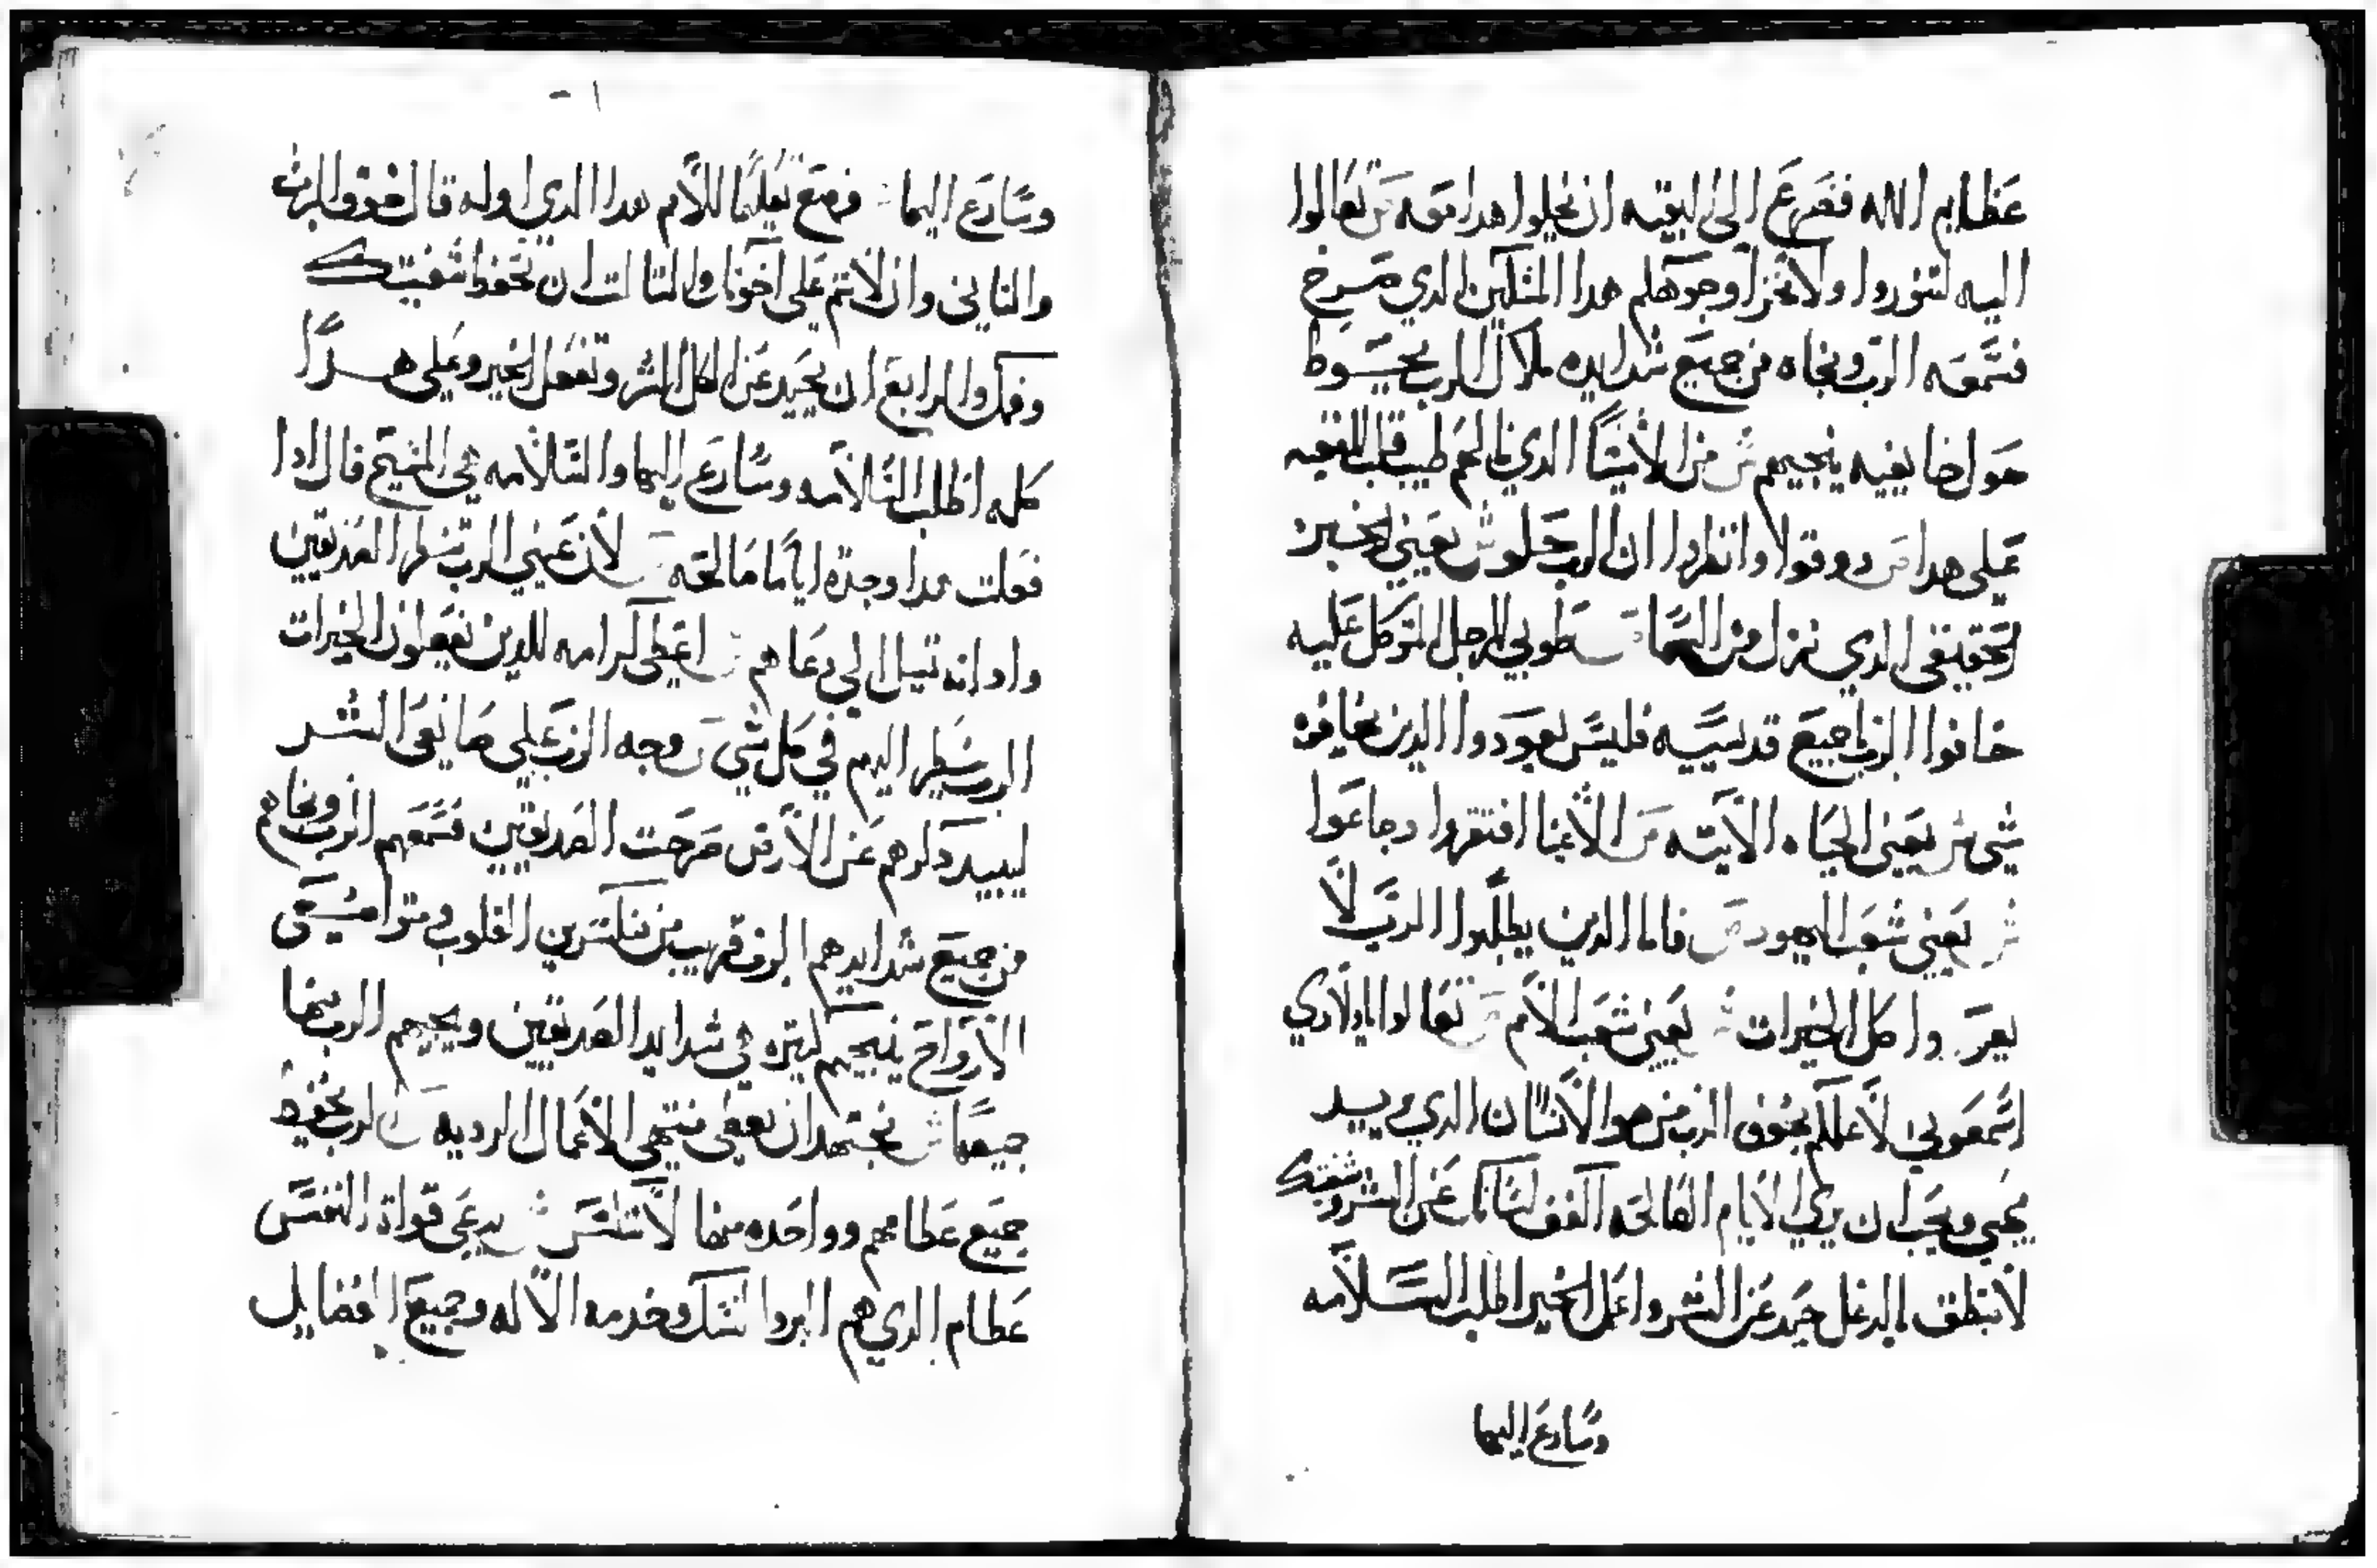 عظايم الله فتضرع الى البقيه ان يحلوا هدا معه ص تعالوا
اليه لتنوروا ولا تخزا وجوهكم هدا المسكين الدي صرخ
فسمعه الرب ونجاه من جميع شدايده ملاك الرب يحوط
حول خايفيه ينجيهم ش من الأشيا الدي نالهم طيب قلب للبقيه
على هدا ص دوقوا وانظروا ان الرب حلو ش يعني الخبز
الحقيقي الدي نزل من السما ص طوبي للرجل المتوكل عليه
خافوا الرب يا جميع قدسييه فليس يعوز دوا الدين يخافوه
شي ش يعني الحياه الآبيه ص الأغنيا افتقروا وجاعوا
ش يعني شعب اليهود ص فاما الدين يطلبوا الرب لا
يعوزوا كل الخيرات ش يعني شعب الأمم ص تعالوا يا اولادي
اسمعوني لأعلمكم بخوف الرب من هو الأنسان الدي يريد
يحيي ويحب ان يري الأيام الصالحه اكفف لسانك عن الشر وشفتيك
لا تنطق بالدغل حيد عن الشر واعمل الخير اطلب السلامه
وسارع اليها
وسارع اليها ش فوضع تعليما للأمم هدا الدي اوله قال خوف الرب
والتاني وان لا تنم على اخوك والتالت ان تحفظ شفتيك
وفمك والرابع ان تحيد عن كل الشر وتفعل الخير وعلى هدا
كله اطلب السلامه وسارع اليها والسلامه هي المسيح قال ادا
فعلت هدا وجدة اياما صالحه ص لأن عيني الرب تنظر الصديقين
وادانه تميل الي دعاهم ش اعطى كرامه للدين يفعلون الخيرات
الرب ينظر اليهم في كل شي ص وجه الرب على صانعى الشر
ليبيد دكرهم عن الأرض صرخت الصديقين فسمعهم الرب ونجاهم
من جميع شدايدهم الرب قريب من منكسرين القلوب ومتواضعى
الأرواح ينجيهم كتيره هي شدايد الصديقين وينجيهم الرب منها
جميعها ش نجتهد ان نعطى منتهى الأعمال الرديه ص الرب يحفظ
جميع عظامهم وواحده منها لا تنكسر ش يدعى قواة النفس
عظام الدي هم البر والنسك وخدمه الأله وجميع الفضايل